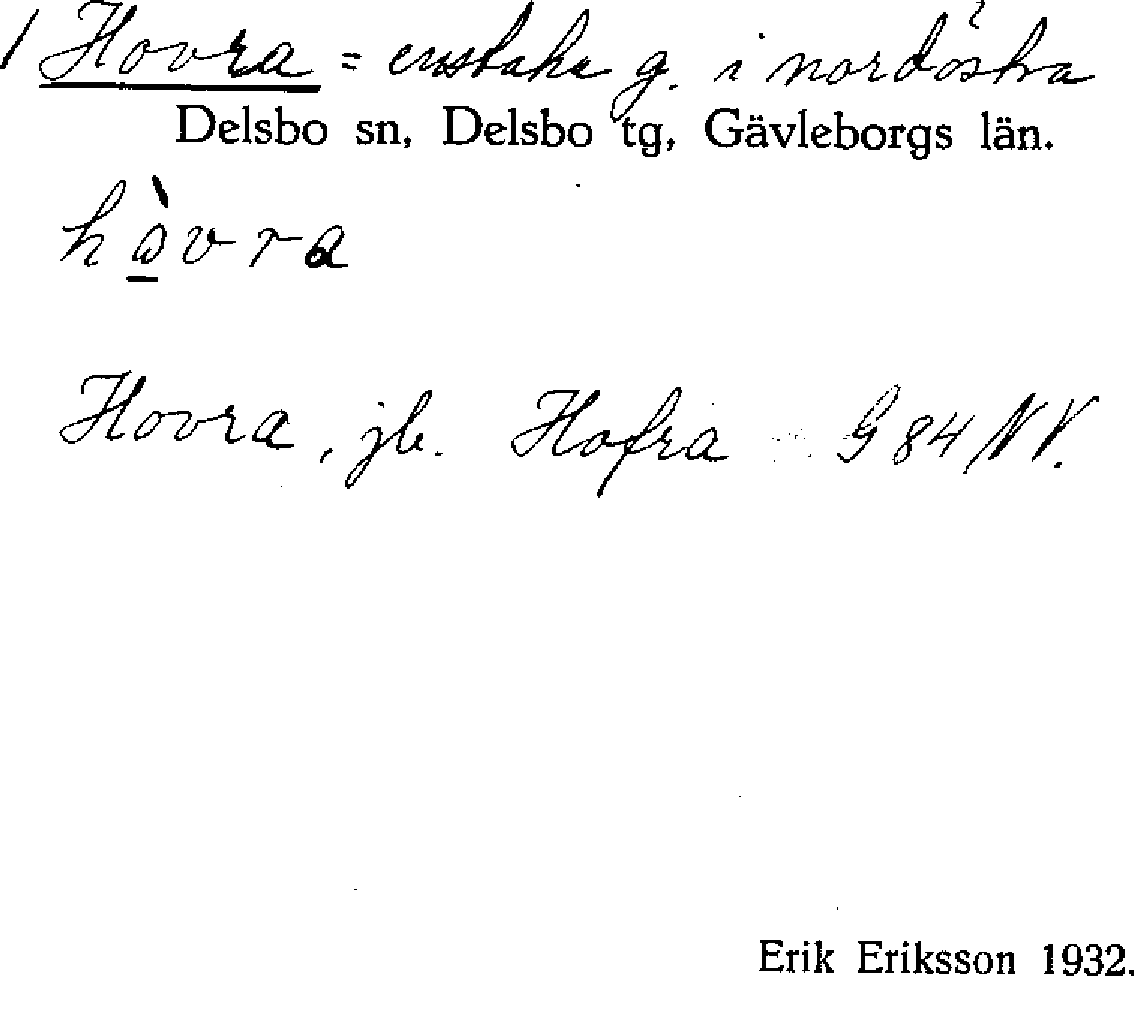 / Hovra = enstaka g. i nordöstra
Delsbo sn, Delsbo tg, Gävleborgs län.
hàvra
Hovra, jb. Hofra G 84 NV.
Erik Eriksson 1932.